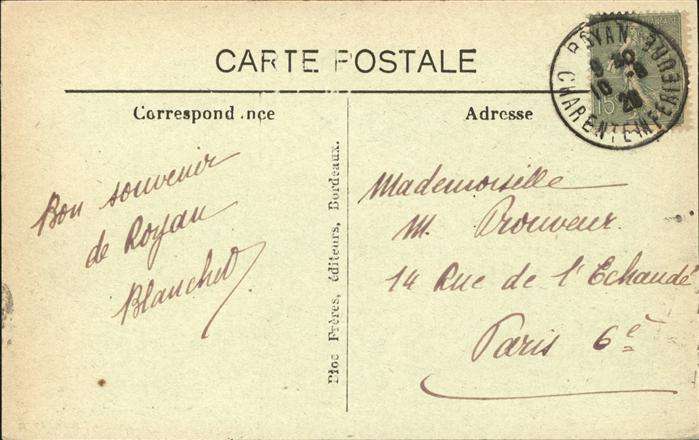 CARTE POSTALE
Correspondance
Adresse
ROYAN
CHARENTE INFERIEURE
15
Bon souvenir
de Royan
Blanchet
Bloc Frères, éditeurs, Bordeaux.
Mademoiselle
M. Prouveur.
14 Rue de l'Echaudé
Paris 6e